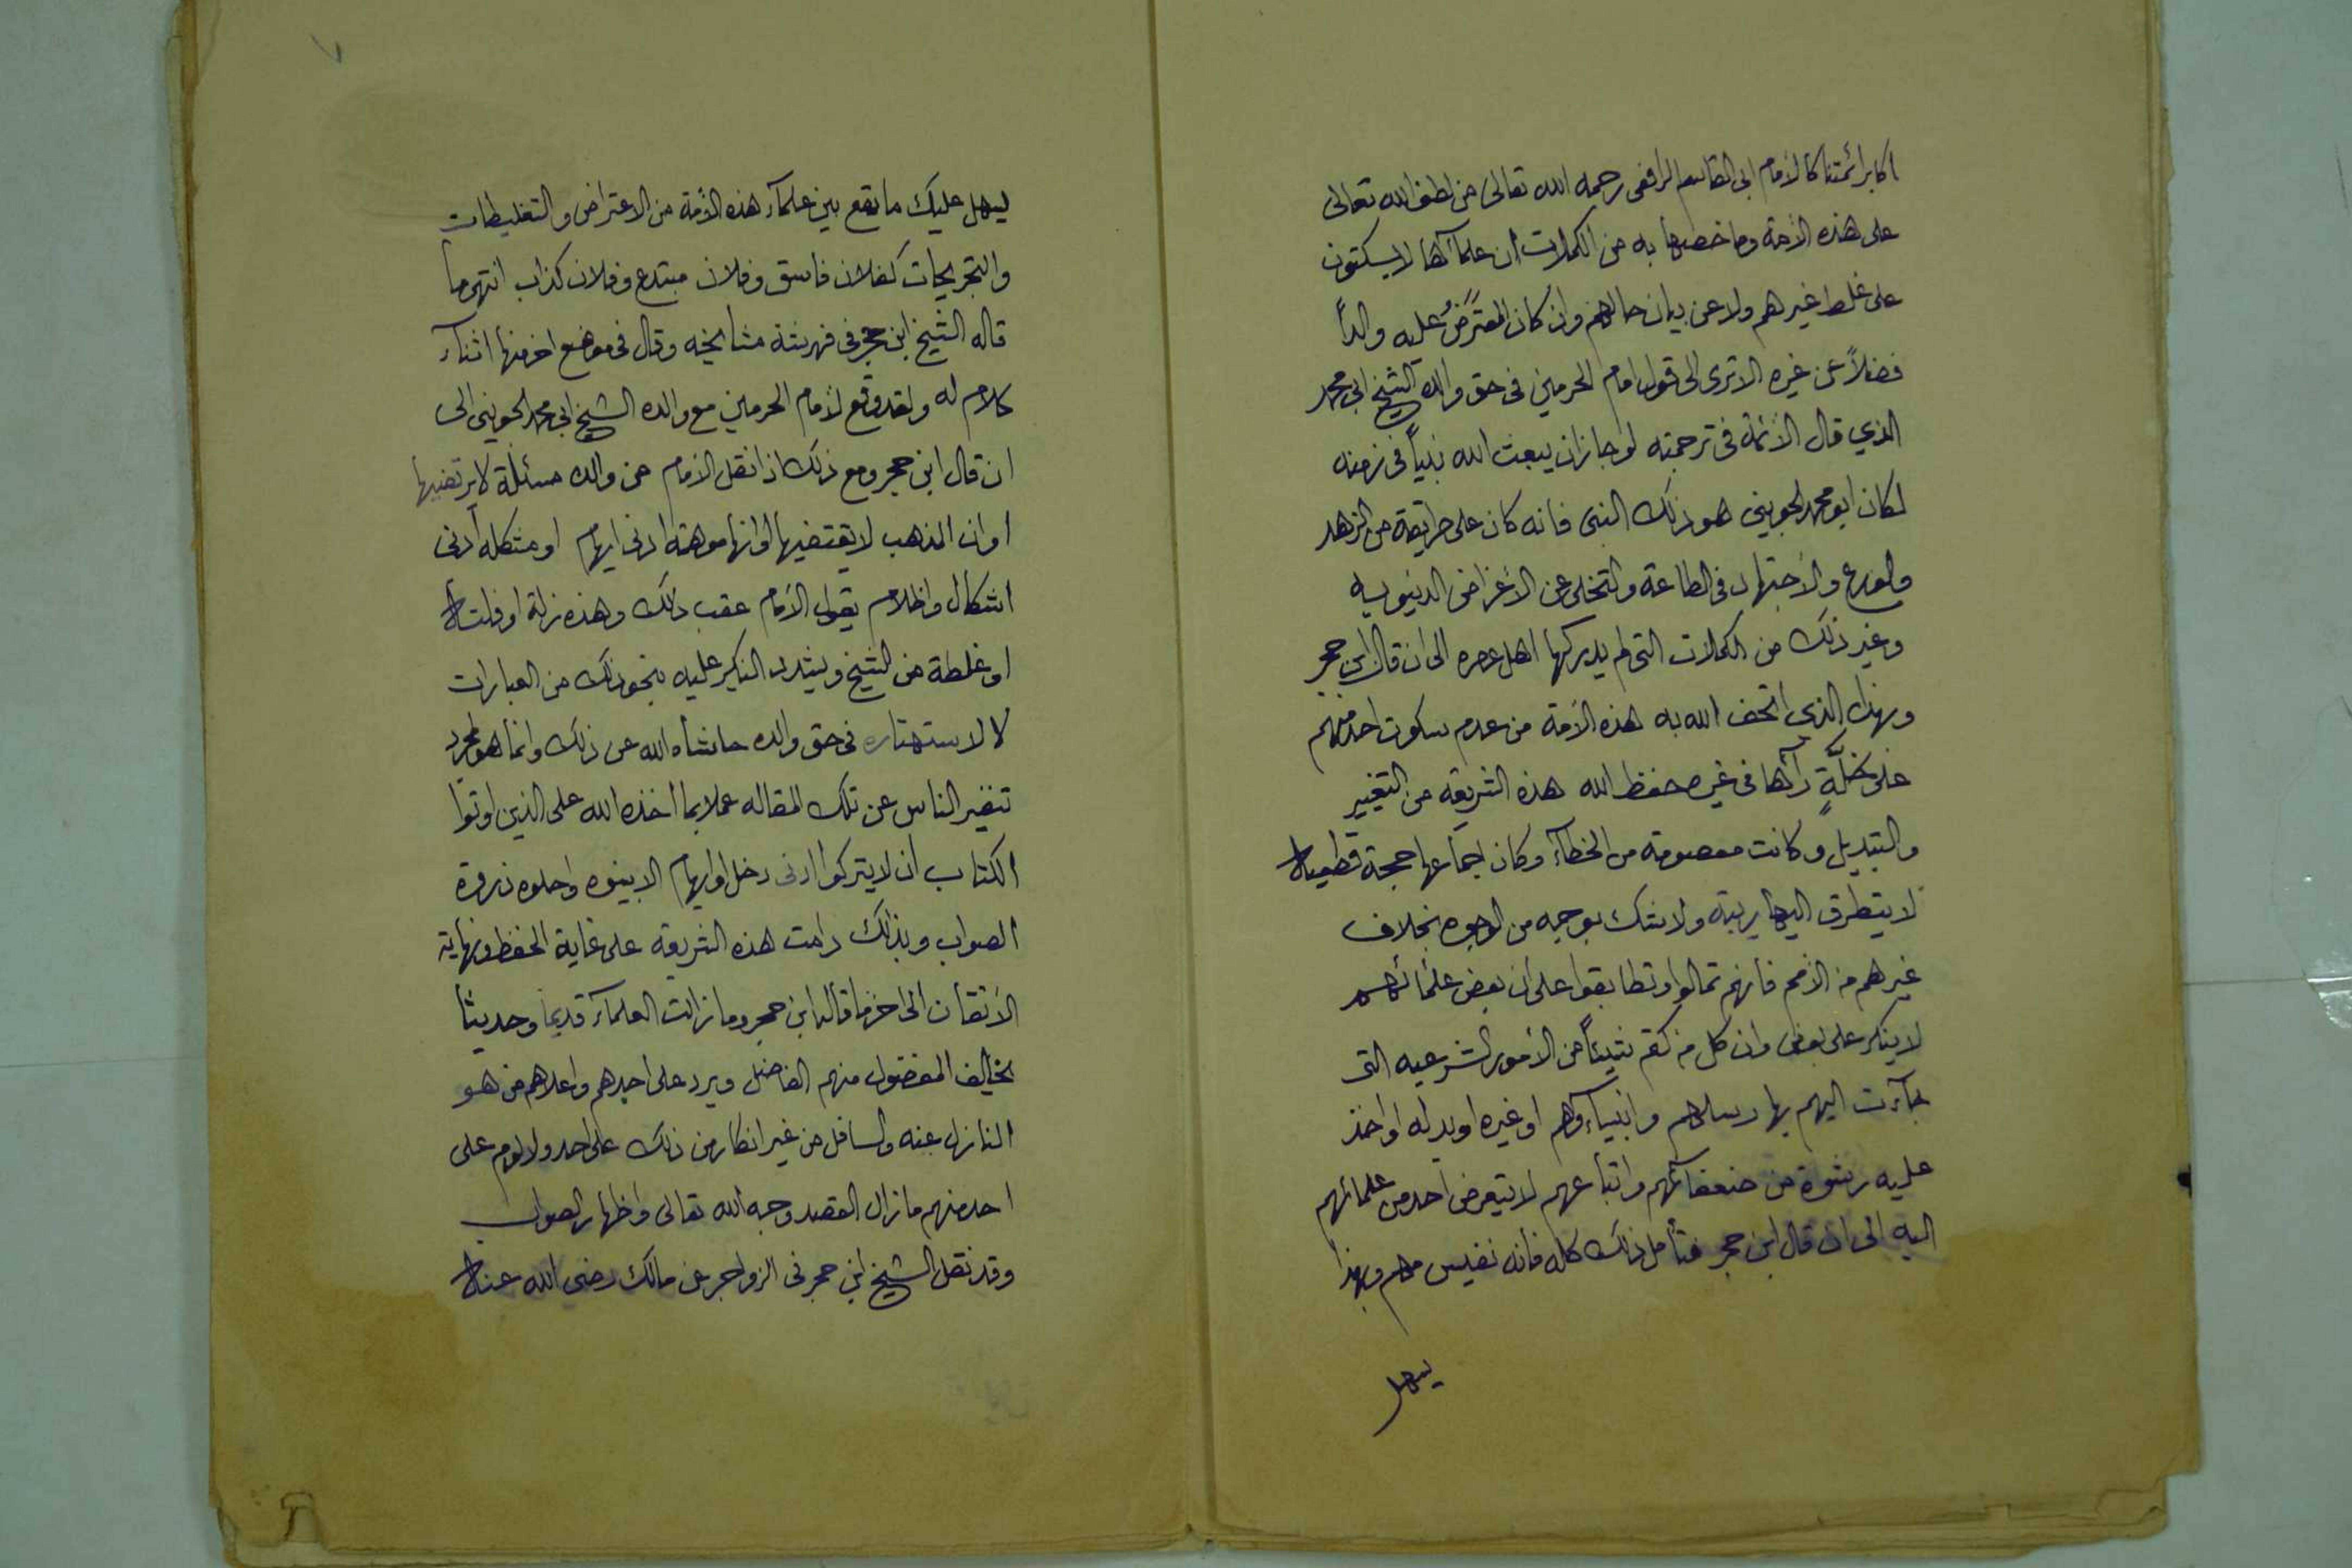 اكابر ائمتنا كالامام ابى القاسم الرافعى رحمه الله تعالى من لطف الله تعالى
على هذه الأمة وما خصها به من الكمالات ان علمآئها لا يسكتون
على غلط غيرهم ولا عن بيان حالهم وان كان المعترض عليه والداً
فضلاً عن غيره الا ترى الى قول امام الحرمين فى حق والده الشيخ ابى محمد
الذي قال الأئمة فى ترجمته لو جاز ان يبعث الله نبياً فى زمنه
لكان ابو محمد الجوينى هو ذلك النبى فانه كان على طريقة من الزهد
والورع والأجتهاد فى الطاعة والتخلى عن الأغراض الدنيويه
وغير ذلك من الكمالات التى لم يدركها اهل عصره الى ان قال ابن حجر
وبهذا الذى اتحف الله به هذه الأمة من عدم سكوت احد منهم
على خلَّةٍ رآها فى غيره حفظ الله هذه الشريعة من التغيير
والتبديل وكانت معصومة من الخطآء وكان اجماعها حجة قطعية
لا يتطرق اليها ريبة ولا شك بوجه من الوجوه بخلاف
غيرهم من الأمم فانهم تمالوا وتطابقوا على ان بعض علمائهم
لا ينكر على بعض وان كل من كتم شيئاً من الأمور الشرعيه التى
جآءت اليهم بها رسلهم وانبيآءهم او غيره او بدله او اخذ
عليه رشوة من ضعفائهم واتباعهم لا يتعرض احد من علمائهم
اليه الى ان قال ابن حجر فتأمل ذلك كله فانه نفيس مهم وبهذا
يسهل
ليهل عليك ما يقع بين علمآء هذه الأمة من الاعتراض والتغليطات
والتجريحات كفلان فاسق وفلان مبتدع وفلان كذاب انتهى ما
قاله الشيخ ابن حجر فى فهرسة مشايخه وقال فى موضع اخر منها اثناء
كلام له ولقد وقع لأمام الحرمين مع والده الشيخ ابى محمد الجوينى الى
ان قال ابن حجر ومع ذلك اذا نقل الأمام عن والده مسئلة لا يرتضيها
او ان المذهب لا يقتضيها او انها موهمة ادنى ايهام او مشكله ادنى
اشكال واظلام يقول الأمام عقب ذلك وهذه زلة او فلتة
او غلطة من الشيخ ويشدد النكير عليه بنحو ذلك من العبارات
لا لاستهتاره فى حق والده حاشاه الله عن ذلك وانما هو لمجرد
تنفير الناس عن تلك المقاله عملا بما اخذه الله على الذين اوتوا
الكتاب ان لا يتركوا ادنى دخل او ايهام الا بينوه واحلوه ذروة
الصواب وبذلك دامت هذه الشريعة على غاية الحفظ ونهاية
الأتقان الى اخر ما قاله ابن حجر وما زالت العلمآء قديماً وحديثاً
يخالف المفضول منهم الفاضل ويرد على اجلهم واعلاهم من هو
النازل عنه والسافل من غير انكار من ذلك على احد ولا لوم على
احد منهم ما زال القصد وجه الله تعالى واظهار الصواب
وقد نقل الشيخ ابن حجر فى الزواجر عن مالك رضى الله عنه